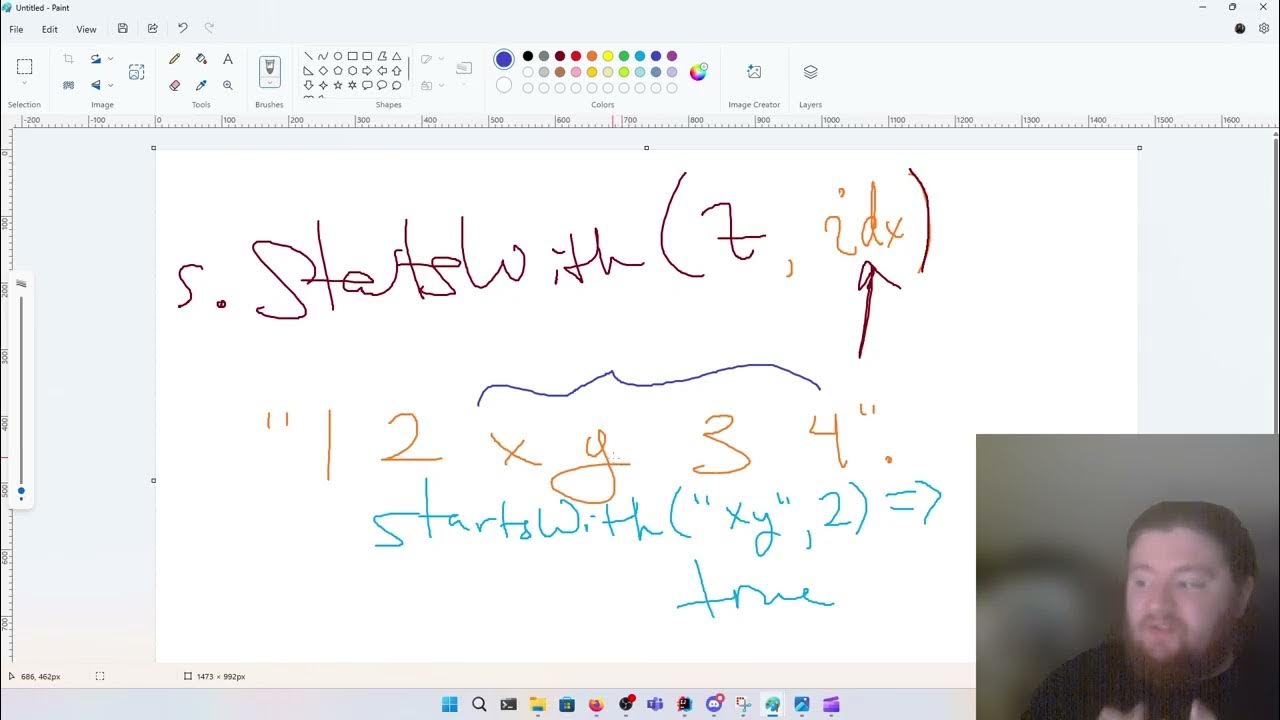 Untitled - Paint
File Edit View
Selection Image Tools Brushes Shapes Colors Image Creator Layers
-200 -100 0 100 200 300 400 500 600 700 800 900 1000 1100 1200 1300 1400 1500 1600
0
100
200
300
400
500
600
700
s. StartsWith(t, idx)
"12xy34".
startsWith("xy", 2) =>
true
686, 462px 1473 × 992px